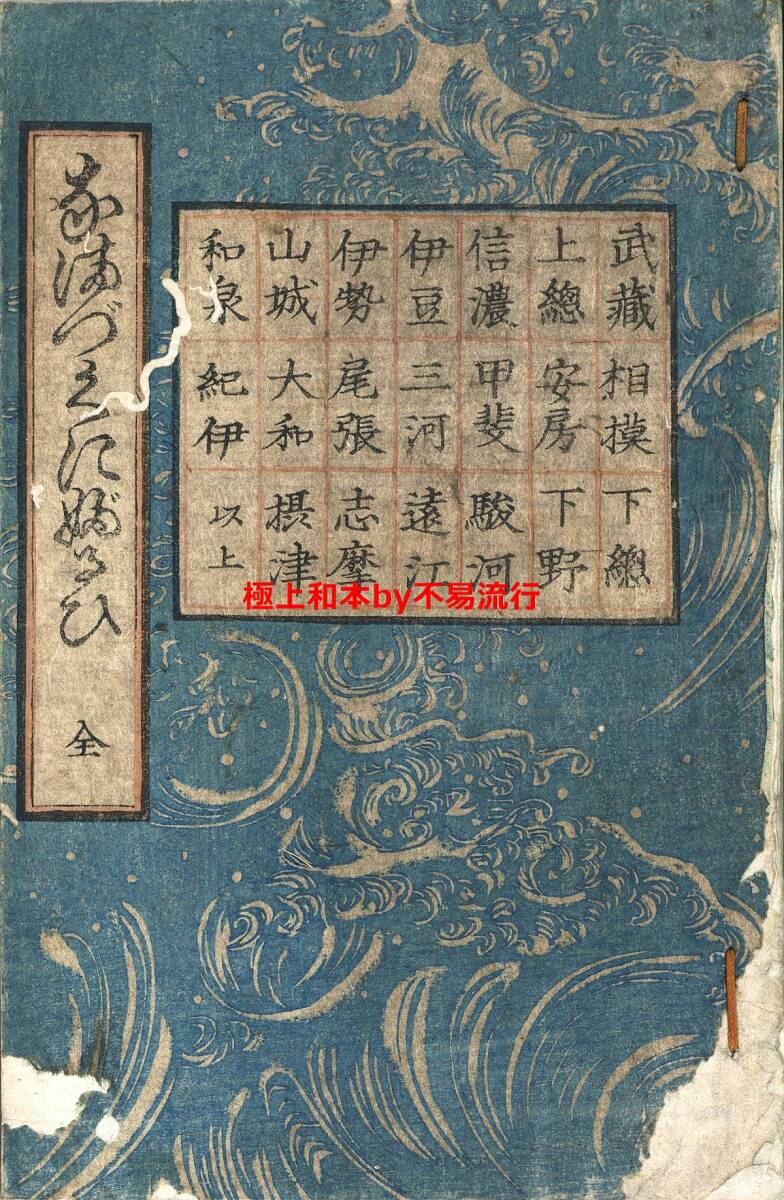 武藏 相摸 下總
上總 安房 下野
信濃 甲斐 駿河
伊豆 三河 遠江
伊勢 尾張 志摩
山城 大和 摂津
和泉 紀伊 以上
全
極上和本by不易流行